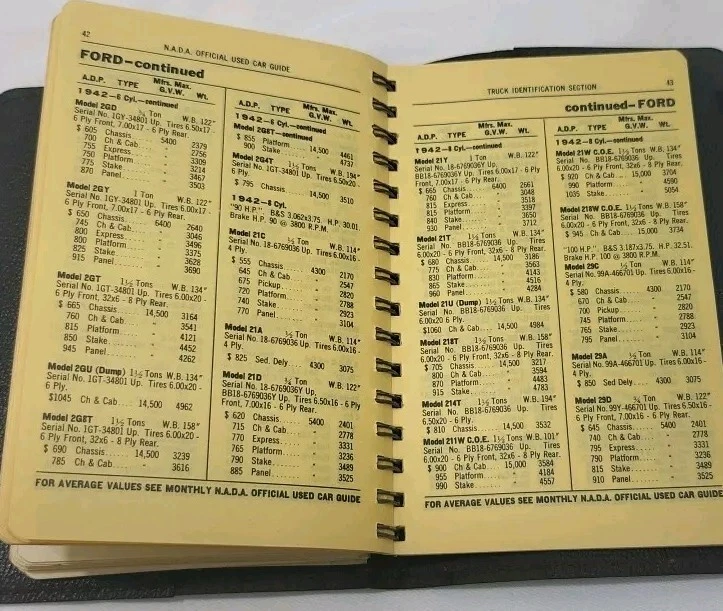 42
N.A.D.A. OFFICIAL USED CAR GUIDE
FORD—continued
A.D.P. TYPE Mfrs. Max. G.V.W. Wt.
1942—6 Cyl.—continued
Model 2GD ¾ Ton W.B. 122"
Serial No. 1GY-34801 Up. Tires 6.50x17 -
6 Ply Front, 7.00x17 - 6 Ply Rear.
$ 605 Chassis 5400 2379
700 Ch & Cab " 2756
755 Express " 3309
750 Platform " 3214
775 Stake " 3467
870 Panel " 3503
Model 2GY 1 Ton W.B. 122"
Serial No. 1GY-34801 Up. Tires 6.00x17 -
6 Ply Front, 7.00x17 - 6 Ply Rear.
$ 650 Chassis 6400 2640
745 Ch & Cab " 3046
800 Express " 3496
800 Platform " 3375
825 Stake " 3628
915 Panel " 3690
Model 2GT 1½ Tons W.B. 134"
Serial No. 1GT-34801 Up. Tires 6.00x20 -
6 Ply Front, 32x6 - 8 Ply Rear.
$ 665 Chassis 14,500 3164
760 Ch & Cab " 3541
815 Platform " 4121
850 Stake " 4452
945 Panel " 4262
Model 2GU (Dump) 1½ Tons W.B. 134"
Serial No. 1GT-34801 Up. Tires 6.00x20 -
6 Ply.
$1045 Ch & Cab 14,500 4962
Model 2G8T 1½ Tons W.B. 158"
Serial No. 1GT-34801 Up. Tires 6.00x20 -
6 Ply Front, 32x6 - 8 Ply Rear.
$ 690 Chassis 14,500 3239
785 Ch & Cab " 3616
A.D.P. TYPE Mfrs. Max. G.V.W. Wt.
1942—6 Cyl.—continued
Model 2G8T—continued
$ 855 Platform 14,500 4461
900 Stake " 4737
Model 2G4T 1½ Tons W.B. 194"
Serial No. 1GT-34801 Up. Tires 6.50x20 -
6 Ply.
$ 795 Chassis 14,500 3510
1942—8 Cyl.
"90 H.P." B&S 3.062x3.75. H.P. 30.01.
Brake H.P. 90 @ 3800 R.P.M.
Model 21C ½ Ton W.B. 114"
Serial No. 18-6769036 Up. Tires 6.00x16 -
4 Ply.
$ 555 Chassis 4300 2170
645 Ch & Cab " 2547
675 Pickup " 2723
720 Platform " 2820
740 Stake " 2788
770 Panel " 2923
3104
Model 21A ½ Ton W.B. 114"
Serial No. 18-6769036 Up. Tires 6.00x16 -
4 Ply.
$ 825 Sed. Dely 4300 3075
Model 21D ¾ Ton W.B. 122"
Serial No. 18-6769036Y Up,
BB18-6769036Y Up. Tires 6.50x16 - 6 Ply
Front, 7.00x16 - 6 Ply Rear.
$ 620 Chassis 5400 2401
715 Ch & Cab " 2778
770 Express " 3331
765 Platform " 3236
790 Stake " 3489
885 Panel " 3525
FOR AVERAGE VALUES SEE MONTHLY N.A.D.A. OFFICIAL USED CAR GUIDE
TRUCK IDENTIFICATION SECTION
43
continued—FORD
A.D.P. TYPE Mfrs. Max. G.V.W. Wt.
1942—8 Cyl.—continued
Model 21Y 1 Ton W.B. 122"
Serial No. 18-6769036Y Up,
BB18-6769036Y Up. Tires 6.00x17 - 6 Ply
Front, 7.00x17 - 6 Ply Rear.
$ 665 Chassis 6400 2661
760 Ch & Cab " 3048
815 Express " 3518
815 Platform " 3397
840 Stake " 3650
930 Panel " 3712
Model 21T 1½ Tons W.B. 134"
Serial No. BB18-6769036 Up. Tires
6.00x20 - 6 Ply Front, 32x6 - 8 Ply Rear.
$ 680 Chassis 14,500 3186
775 Ch & Cab " 3563
830 Platform " 4143
865 Stake " 4516
960 Panel " 4284
Model 21U (Dump) 1½ Tons W.B. 134"
Serial No. BB18-6769036 Up. Tires
6.00x20 6 Ply.
$1060 Ch & Cab 14,500 4984
Model 218T 1½ Tons W.B. 158"
Serial No. BB18-6769036 Up. Tires
6.00x20 - 6 Ply Front, 32x6 - 8 Ply Rear.
$ 705 Chassis 14,500 3217
800 Ch & Cab " 3594
870 Platform " 4483
915 Stake " 4783
Model 214T 1½ Tons W.B. 194"
Serial No. BB18-6769036 Up. Tires
6.50x20 - 6 Ply.
$ 810 Chassis 14,500 3532
Model 211W C.O.E. 1½ Tons W.B. 101"
Serial No. BB18-6769036 Up. Tires
6.00x20 - 6 Ply Front, 32x6 - 8 Ply Rear.
$ 900 Ch & Cab 15,000 3584
955 Platform " 4184
990 Stake " 4557
A.D.P. TYPE Mfrs. Max. G.V.W. Wt.
1942—8 Cyl.—continued
Model 21W C.O.E. 1½ Tons W.B. 134"
Serial No. BB18-6769036 Up. Tires
6.00x20 - 6 Ply Front, 32x6 - 8 Ply Rear.
$ 920 Ch & Cab 15,000 3704
990 Platform " 4590
1035 Stake " 5054
Model 218W C.O.E. 1½ Tons W.B. 158"
Serial No. BB18-6769036 Up. Tires
6.00x20 - 6 Ply Front, 32x6 - 8 Ply Rear.
$ 945 Ch & Cab 15,000 3734
"100 H.P." B&S 3.187x3.75. H.P. 32.51.
Brake H.P. 100 @ 3800 R.P.M.
Model 29C ½ Ton W.B. 114"
Serial No. 99A-466701 Up. Tires 6.00x16 -
4 Ply.
$ 580 Chassis 4300 2170
670 Ch & Cab " 2547
700 Pickup " 2820
745 Platform " 2788
765 Stake " 2923
795 Panel " 3104
Model 29A ½ Ton W.B. 114"
Serial No. 99A-466701 Up. Tires 6.00x16 -
4 Ply.
$ 850 Sed. Dely 4300 3075
Model 29D ¾ Ton W.B. 122"
Serial No. 99Y-466701 Up. Tires 6.50x16 -
6 Ply Front, 7.00x16 - 6 Ply Rear.
$ 645 Chassis 5400 2401
740 Ch & Cab " 2778
795 Express " 3331
790 Platform " 3236
815 Stake " 3489
910 Panel " 3525
FOR AVERAGE VALUES SEE MONTHLY N.A.D.A. OFFICIAL USED CAR GUIDE